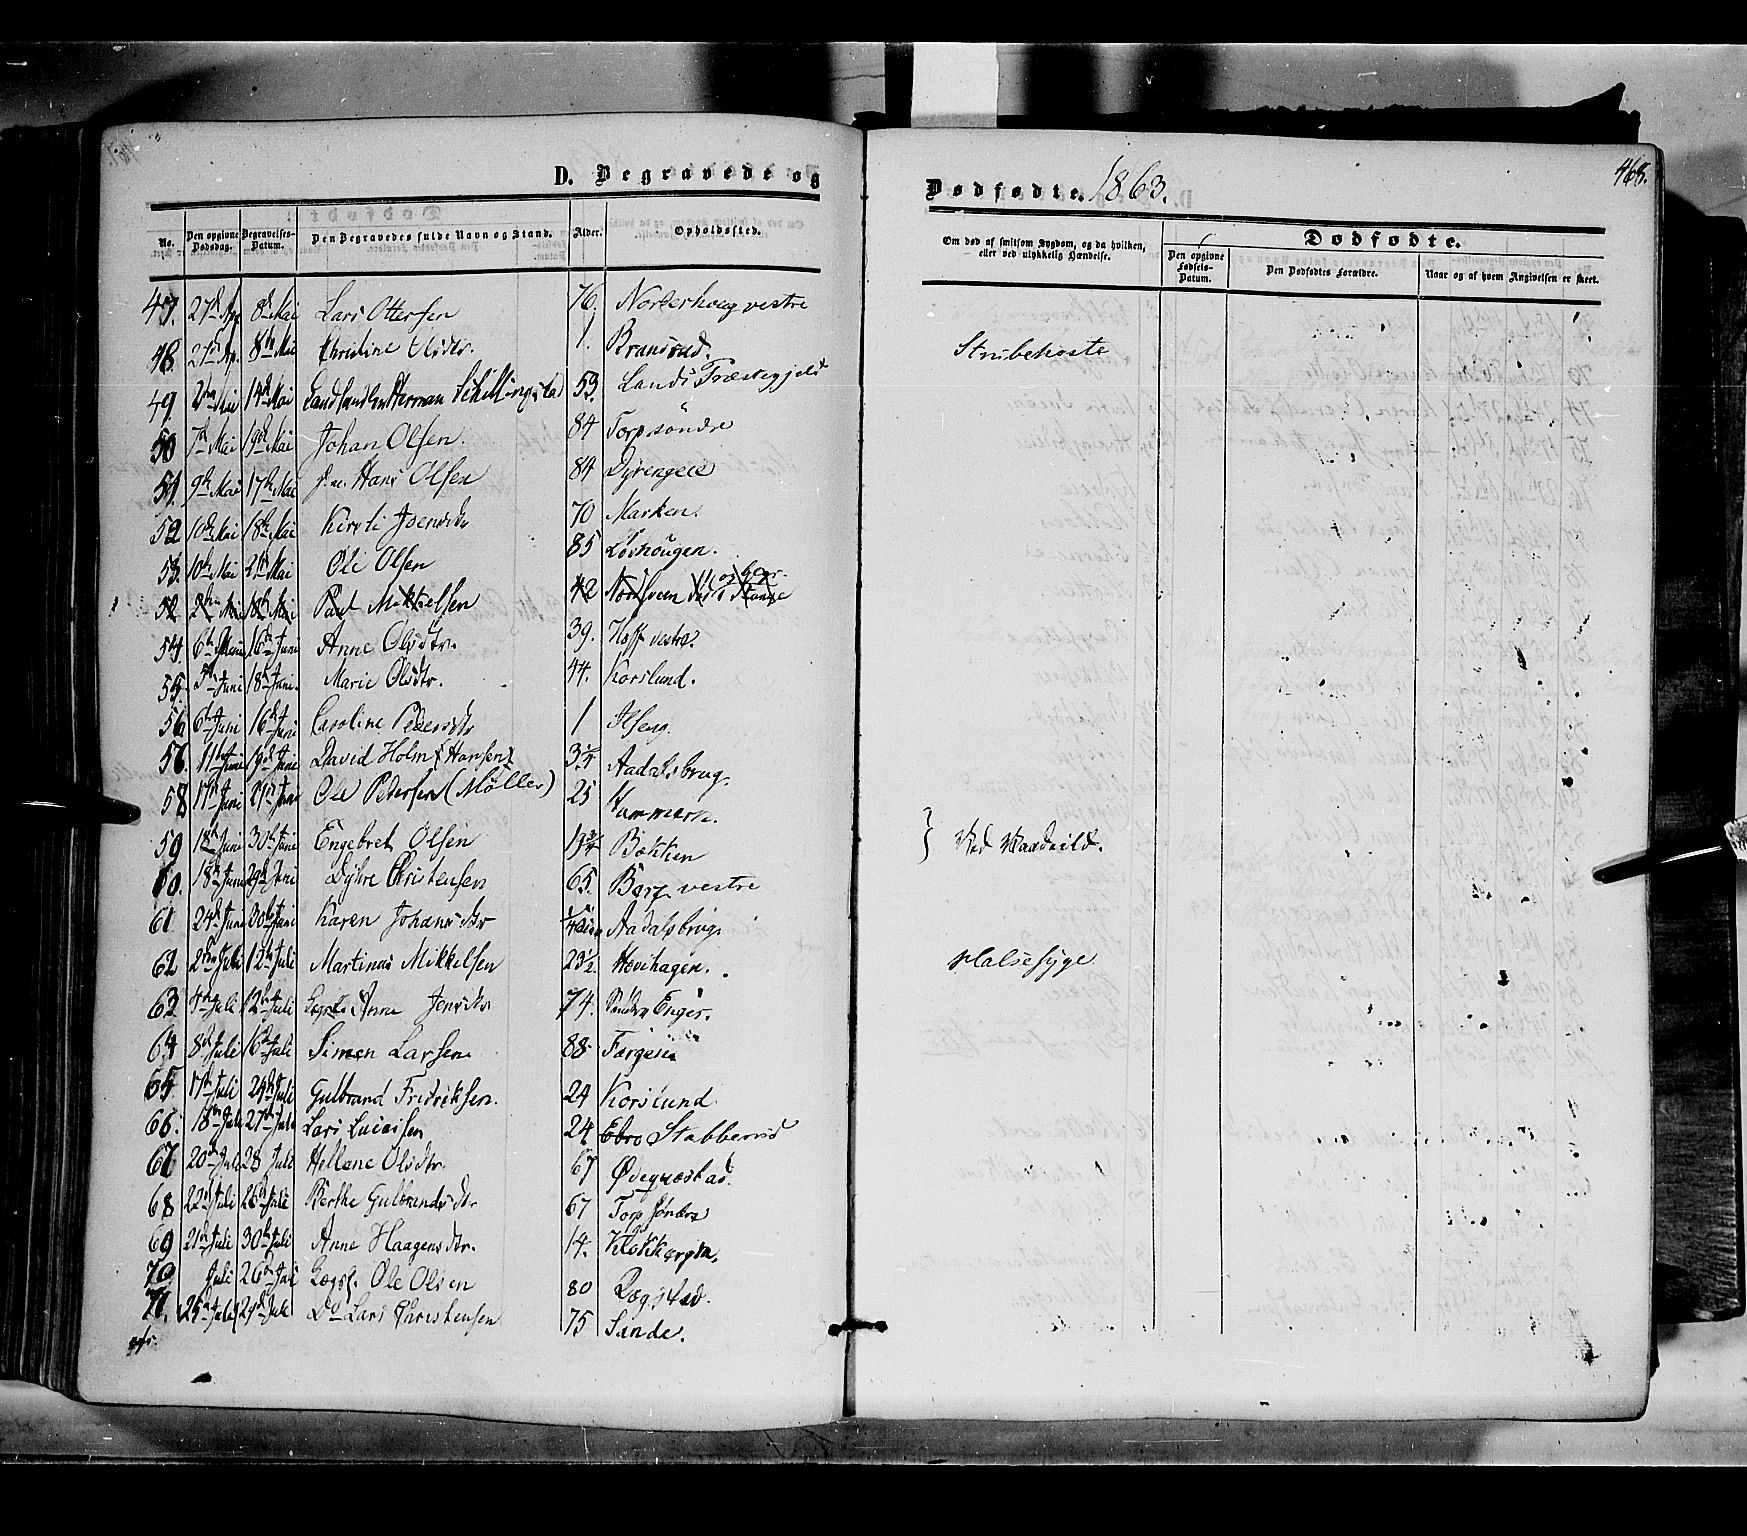 D. Begravede og
Dødfødte. 1863.
468.
No.
Den opgivne Dødsdag.
Begravelses-Datum.
Den Begravedes fulde Navn og Stand.
Alder.
Opholdssted.
Om død af smitsom Sygdom, og da hvilken, eller ved ulykkelig Hændelse.
Dødfødte.
Den opgivne Fødsels-Datum.
Den Dødfødtes Forældre.
Naar og af hvem Angivelsen er skeet.
47. 27de Ap. 8de Mai Lars Ottersen 76. Norderhoug vestre
48. 27de Ap. 8de Mai Christine Olsdtr. 1. Strubehoste
49. 2den Mai 14de Mai Landhandler Herman Schillingstad 53. Lands Præstegjeld
50 7de Mai 19de Mai Johan Olsen. 84 Torp søndre
51. 9de Mai 17de Mai Hans Olsen 84 Dyrengeie
52 10de Mai 18de Mai Kirsti Joensdtr 70 Marken.
53. 10de Mai 21de Mai Ole Olsen 85 Løvhougen.
52 2den Mai 18de Mai Paul Mikkelsen 42
54. 6te 16de Juni Anne Olsdtr. 39. Hoff vestre
55. 5te Juni 18de Juni. Marie Olsdtr. 44. Korslund.
56 6te Juni 16de Juni Caroline Pedersdtr 1 Ilseng.
56. 11te Juni 19de Juni David Holm (Hansen) 3 1/4 Aadalsbrug.
58 17de Juni 21de Juni Ole Pedersen (Møller) 25
59 18de Juni 30te Juni Engebret Olsen 19 3/4 Bakken } Ved Vaadeild.
60. 18de Juni 29de Juni Christensen 65. Berg vestre
61 24de Juni 30te Juni Karen Johansdtr Aadalsbrug.
62 2den Juli 12te Juli Martinus Mikkelsen 23 1/2 Hovihagen. Halsesyge
63 4de Juli 12te Juli Lægdsl. Anne Jensdtr 74. Søndre Enger.
64 8de Juli 16de Juli Simen Larsen. 88
65 17de Juli 24de Juli Gulbrand Fredriksen. 24 Korslund.
66. 18de Juli 27de Juli Lars Lucassen 24 Ebro Stabberud
67 20de Juli 28 Juli Hellene Olsdtr. 67 Ødegaestad.
68 22de Juli 26de Juli Berthe Gulbrandsdtr 67 Torp søndre
69 21de Juli 30te Juli Anne Haagensdtr. 14. Klokkergrn.
70 Juli 26de Juli Lægdsl. Ole Olsen 80
71. 25de Juli 29de Juli Do Lars Christensen 75 Sande.